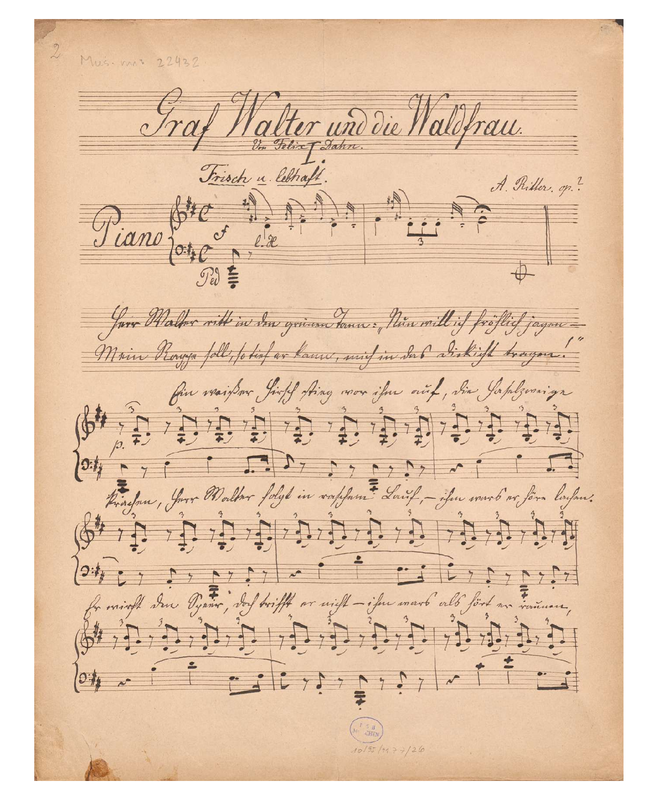 2
Mus. ms. 22432
Graf Walter und die Waldfrau.
Von Felix Dahn.
I.
Frisch u. lebhaft.
A. Ritter, op.?
Piano
f
l. H
3
Ped
Herr Walter ritt in den grünen Tann: „Nun will ich fröhlich jagen –
Mein Rappe soll, so tief er kann, mich in das Dickicht tragen!"
Ein weißer Hirsch stieg vor ihm auf, die Haselzweige
3 3 3 3 3 3 3 3 3 3 3
p.
krachen, Herr Walter folgt in raschem Lauf, – ihm wars er höre lachen.
3 3 3 3 3 3 3 3 3 3 3 3
Er wirft den Speer, doch trifft er nicht – ihm wars als hört er raunen,
3 3 3 3 3 3 3 3 3 3 3 3